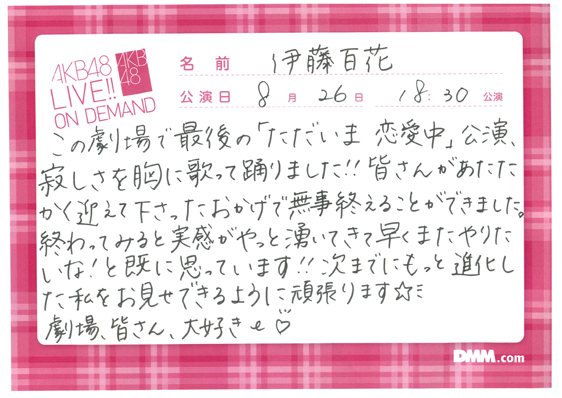 AKB48
LIVE!!
ON DEMAND
AKB
48
名前 伊藤百花
公演日 8月26日 18:30公演
この劇場で最後の「ただいま 恋愛中」公演、
寂しさを胸に歌って踊りました!! 皆さんがあたた
かく迎えて下さったおかげで無事終えることができました。
終わってみると実感がやっと湧いてきて早くまたやりた
いな!と既に思っています!! 次までにもっと進化し
た私をお見せできるように頑張ります☆ミ
劇場、皆さん、大好き♡
DMM.com